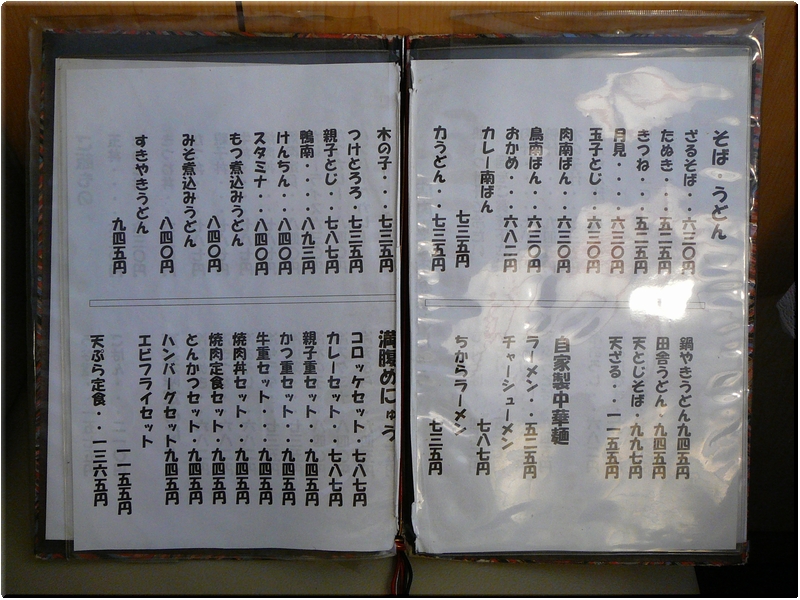 そば・うどん
ざるそば・・六三〇円
たぬき・・・五二五円
きつね・・・五二五円
月見・・・・六三〇円
玉子とじ・・六三〇円
肉南ばん・・六三〇円
鳥南ばん・・六三〇円
おかめ・・・六八二円
カレー南ばん
七三五円
力うどん・・七三五円
鍋やきうどん九四五円
田舎うどん・九四五円
天とじそば・九九七円
天ざる・・一一五五円
自家製中華麺
ラーメン・・五二五円
チャーシューメン
七八七円
ちからラーメン
七三五円
木の子・・・七三五円
つけとろろ　七三五円
親子とじ・・七八七円
鴨南・・・・八九三円
けんちん・・八四〇円
スタミナ・・八四〇円
もつ煮込みうどん
八四〇円
みそ煮込みうどん
八四〇円
すきやきうどん
九四五円
満腹めにゅう
コロッケセット・七八七円
カレーセット・・七八七円
親子重セット・・九四五円
かつ重セット・・九四五円
牛重セット・・・九四五円
焼肉丼セット・・九四五円
焼肉定食セット・九四五円
とんかつセット・九四五円
ハンバーグセット九四五円
エビフライセット
一一五五円
天ぷら定食・・一三六五円